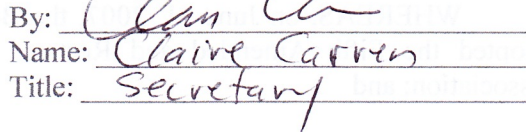 By:
Name: Claire Carren
Title: Secretary